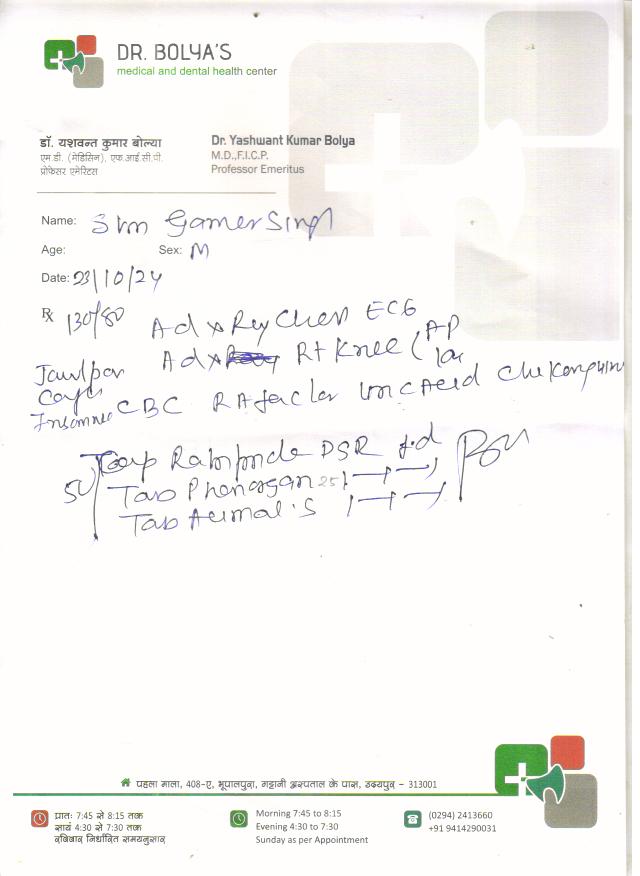 DR. BOLYA'S
medical and dental health center
डॉ. यशवन्त कुमार बोल्या
एम.डी. (मेडिसिन), एफ.आई.सी.पी.
प्रोफेसर एमेरिटस
Dr. Yashwant Kumar Bolya
M.D.,F.I.C.P.
Professor Emeritus
Name: Gamer Singh
Age: Sex: M
Date: 23/10/24
℞ 130/80
Ad x Ray Chest ECG
Ad x Rt Knee ( AP
CBC RA factor Uric Acid
Cap DSR
Tab Phenargan 25
Tab
पहला माला, 408-ए, भूपालपुरा, गट्टानी अस्पताल के पास, उदयपुर - 313001
प्रातः 7:45 से 8:15 तक
सायं 4:30 से 7:30 तक
रविवार निर्धारित समयनुसार
Morning 7:45 to 8:15
Evening 4:30 to 7:30
Sunday as per Appointment
(0294) 2413660
+91 9414290031